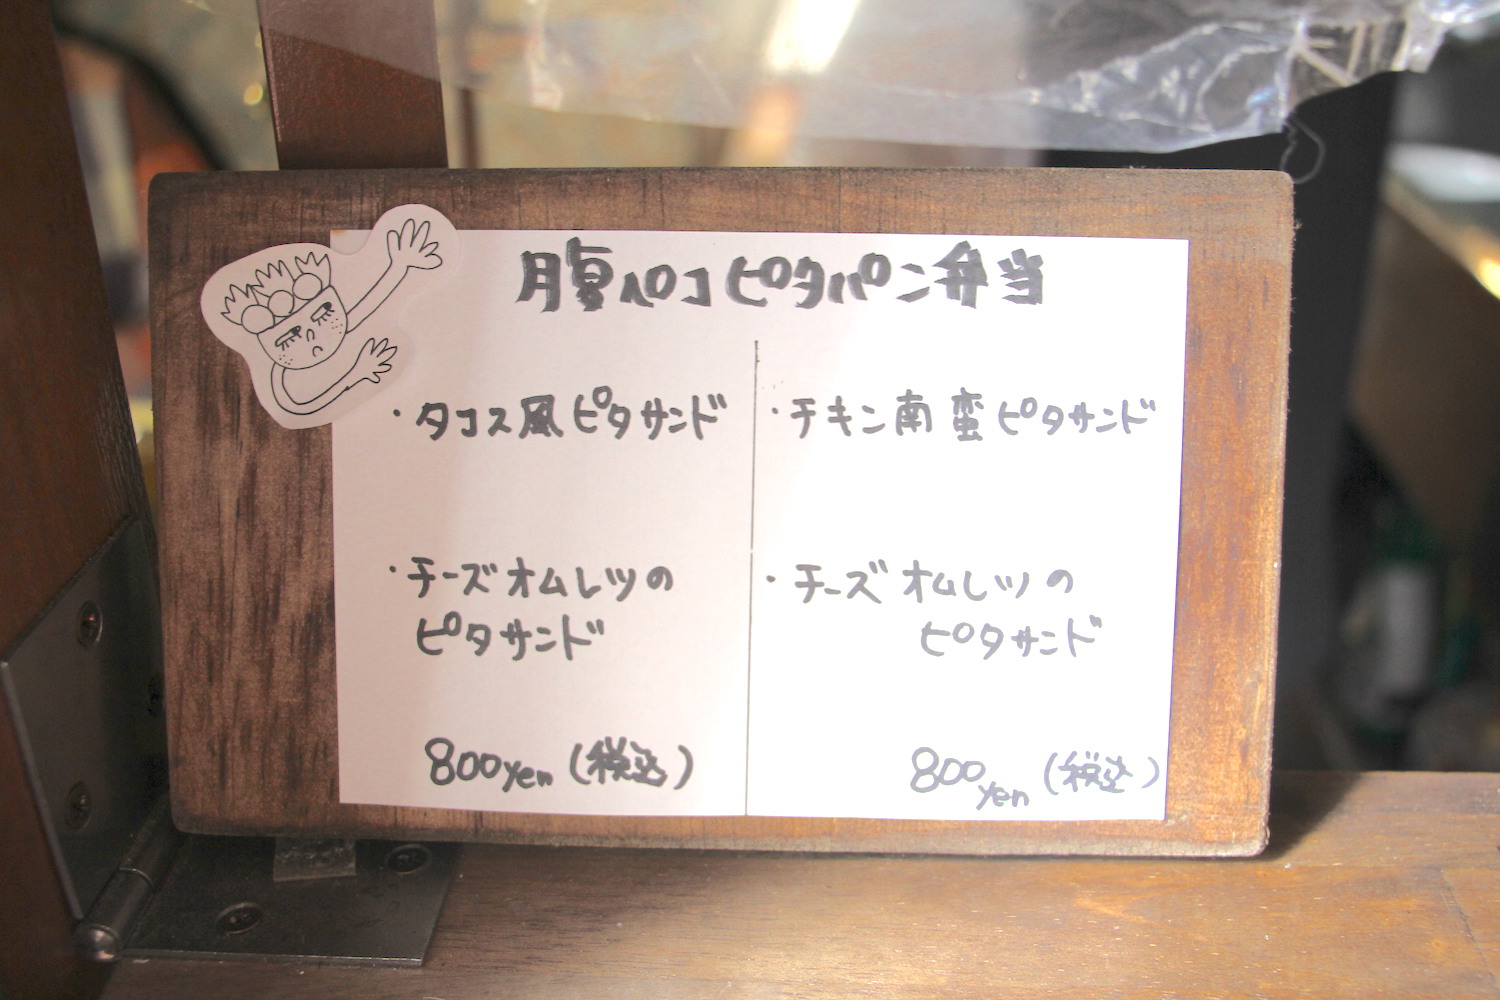 腹ペコピタパン弁当
・タコス風ピタサンド
・チーズオムレツの
ピタサンド
800yen (税込)
・チキン南蛮ピタサンド
・チーズオムレツの
ピタサンド
800yen (税込)